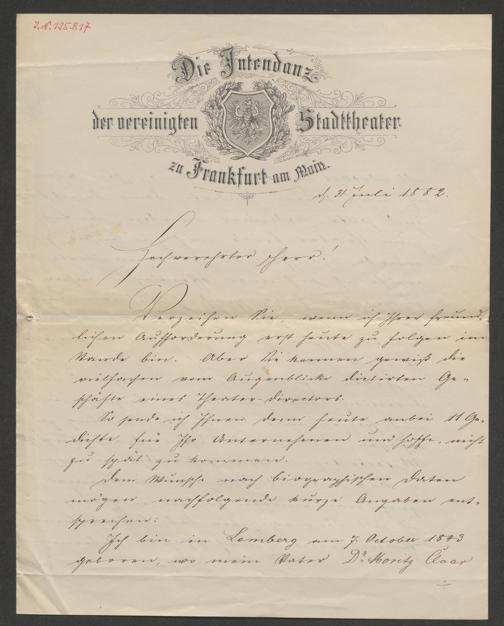 I.N. 125.817
Die Intendanz
der vereinigten Stadttheater
zu Frankfurt am Main.
d. 31 Juli 1882.
Hochverehrter Herr!
Verzeihen Sie, wenn ich Ihrer freund-
lichen Aufforderung erst heute zu folgen im
Stande bin. Aber Sie kennen gewiß die
vielfachen vom Augenblicke dictirten Ge-
schäfte eines Theater-Directors.
So sende ich Ihnen denn heute anbei 11 Ge-
dichte für Ihr Unternehmen und hoffe, nicht
zu spät zu kommen.
Dem Wunsche nach biographischen Daten
mögen nachfolgende kurze Angaben ent-
sprechen:
Ich bin in Lemberg am 7. October 1843
geboren, wo mein Vater Dr. Moritz Claar